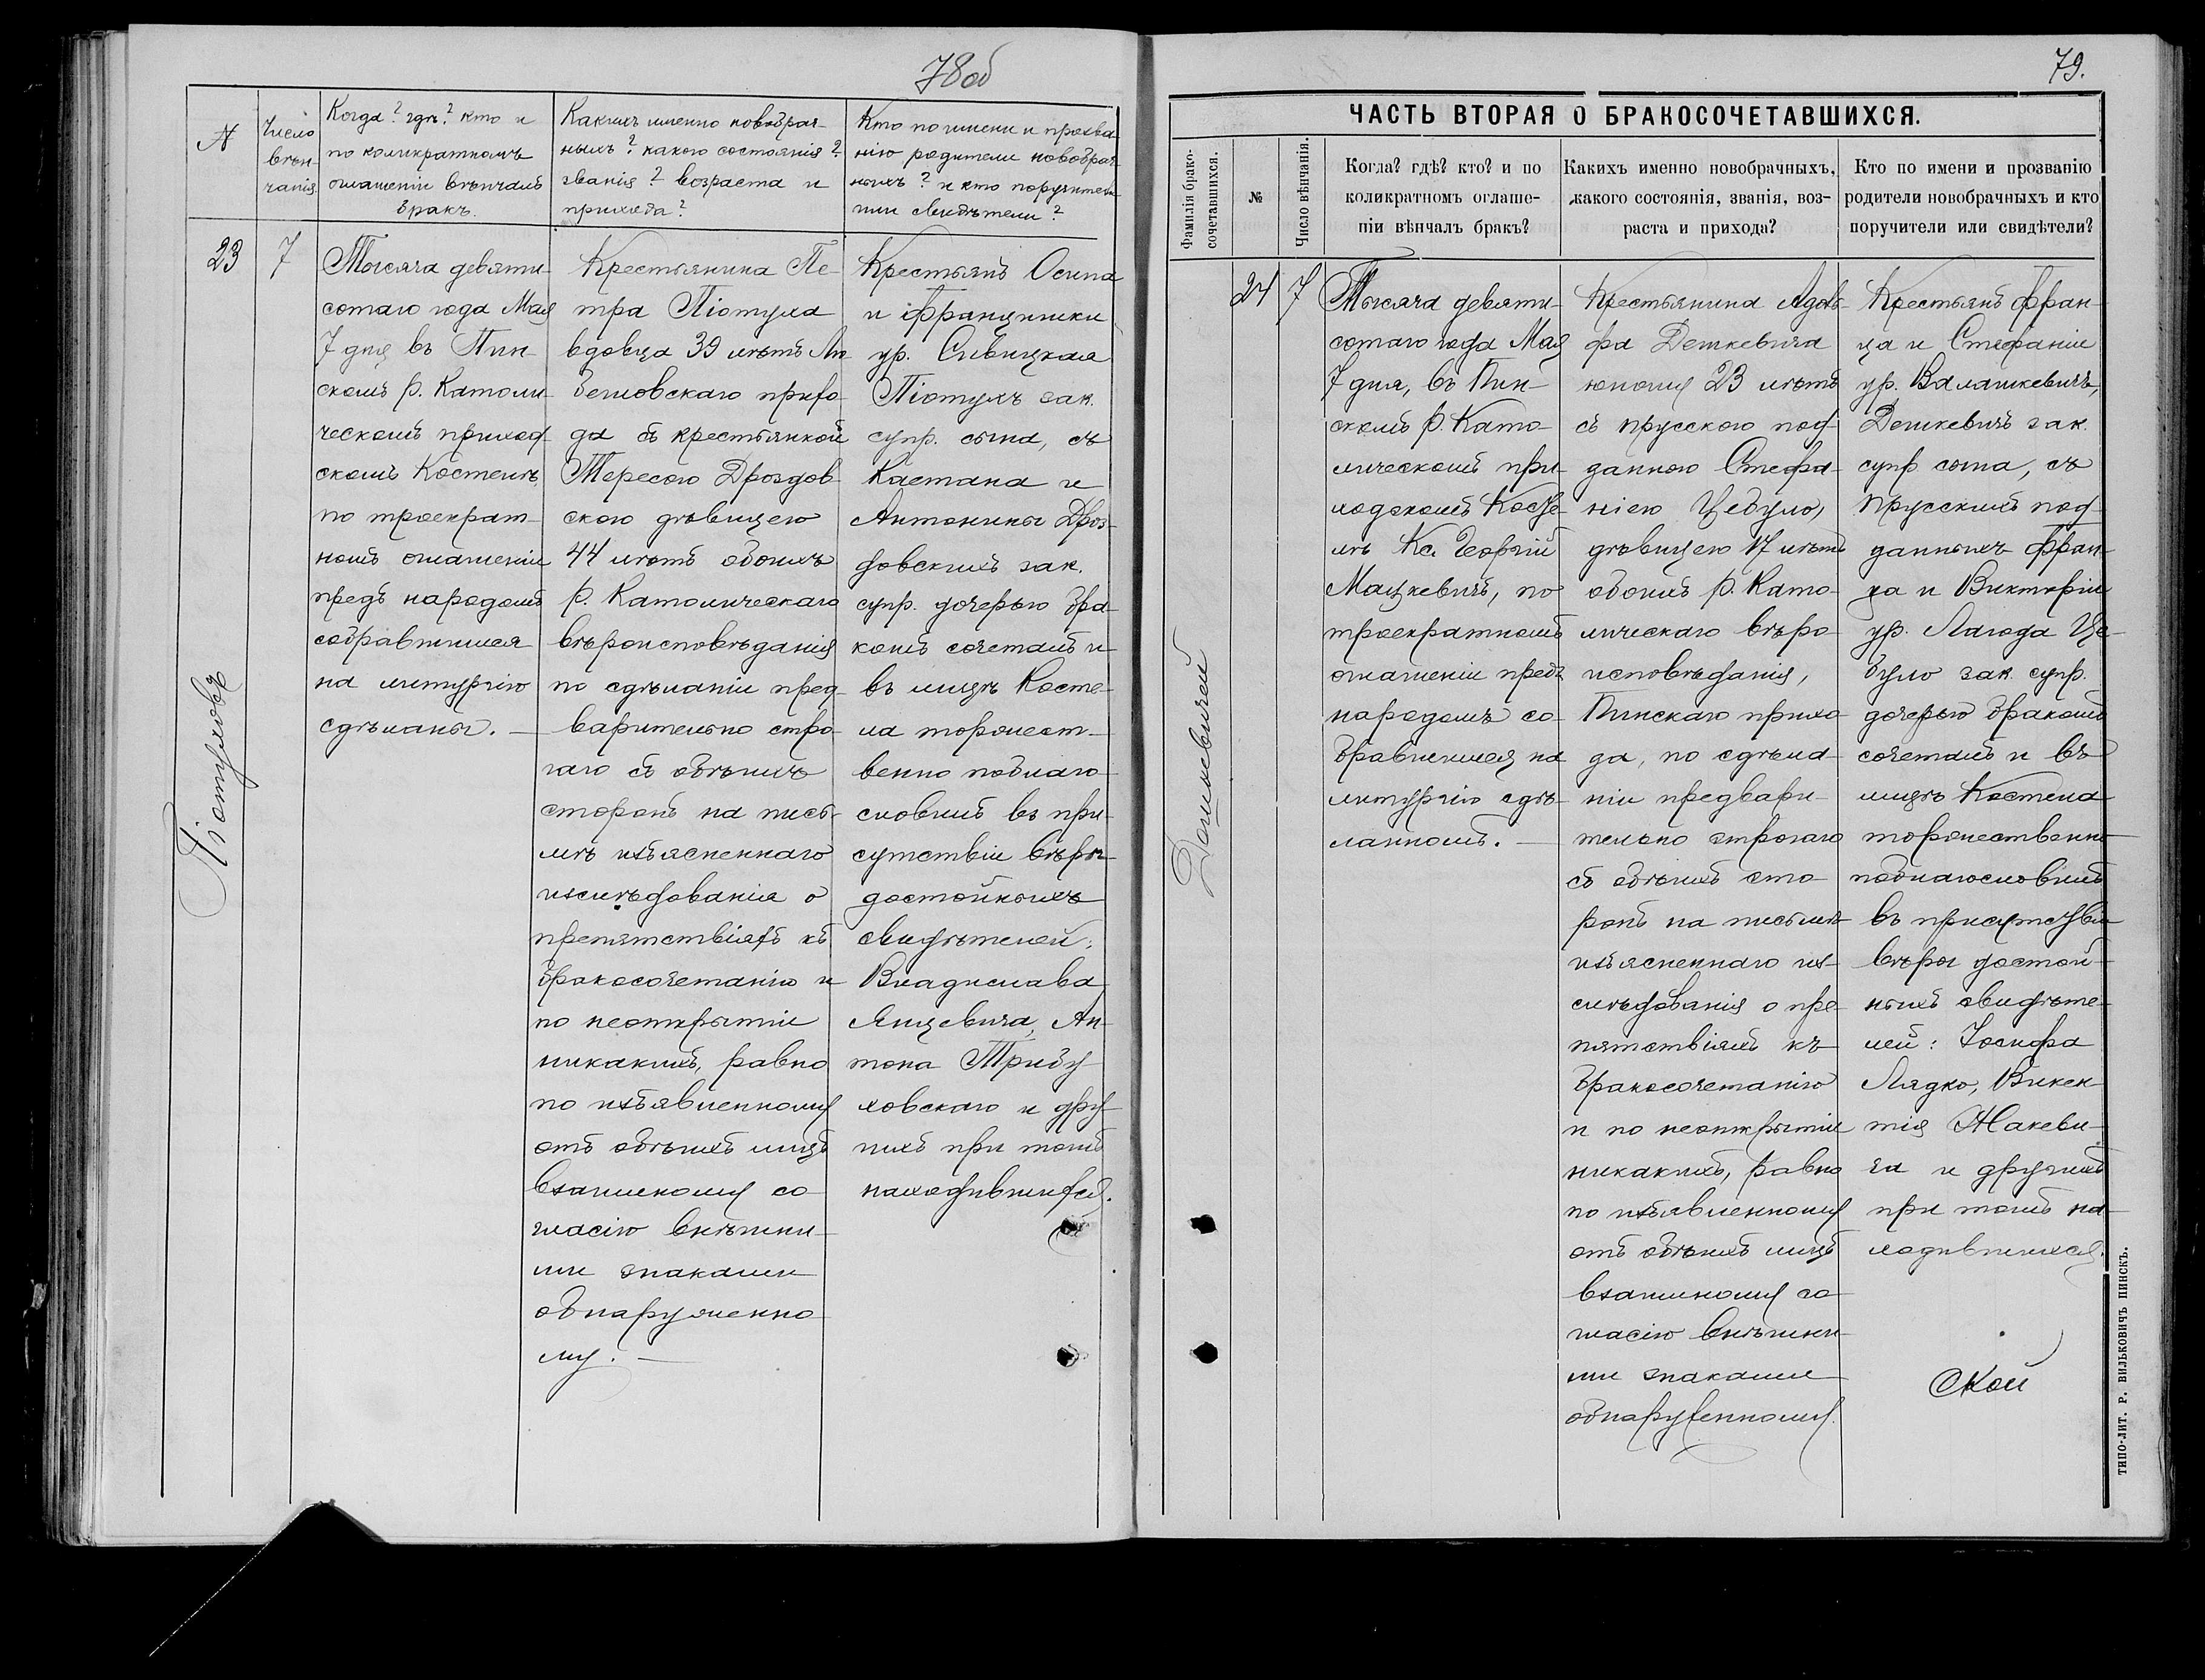 78об
N
Число
вѣн-
чанія
Когда? гдѣ? кто и
по коликратномъ
оглашеніи вѣнчалъ
бракъ.
Какихъ именно новобрач-
ныхъ? какого состоянія?
званія? возраста и
прихода?
Кто по имени и прозва-
нію родители новобрач-
ныхъ? и кто поручители
или свидѣтели?
Піотуховъ
23
7
Тысяча девяти-
сотаго года Мая
7 дня въ Пин-
скомъ р. Католи-
ческомъ приход-
скомъ Костелѣ
по троекрат-
номъ оглашеніи
предъ народомъ
собравшимся
на литургію
сдѣланы. —
Крестьянина Пе-
тра Піотуха
вдовца 39 лѣтъ Лю-
бешовскаго прихо-
да съ крестьянкой
Тересою Дроздов-
скою дѣвицею
44 лѣтъ обоихъ
р. Католическаго
вѣроисповѣданія
по сдѣланіи пред-
варительно стро-
гаго съ обѣихъ
сторонъ на пись-
мѣ изъясненнаго
изслѣдованія о
препятствіяхъ къ
бракосочетанію и
по неоткрытіи
никакихъ, равно
по изъявленному
отъ обѣихъ лицъ
взаимному со-
гласію внѣшни-
ми знаками
обнаруженно-
му. —
Крестьянъ Осипа
и Францишки
ур. Сивицкая
Піотухъ зак.
супр. сына, съ
Каетана и
Антонины Дроз-
довскихъ зак.
супр. дочерью бра-
комъ сочеталъ и
въ лицѣ Косте-
ла торжест-
венно поблаго-
словилъ въ при-
сутствіи вѣры-
достойныхъ
свидѣтелей:
Владислава
Янцевича, Ан-
тона Трибу-
ховскаго и дру-
гихъ при томъ
находившихся.
79.
ЧАСТЬ ВТОРАЯ О БРАКОСОЧЕТАВШИХСЯ.
Фамилія брако-
сочетавшихся.
№
Число вѣнчанія.
Когда? гдѣ? кто? и по
коликратномъ оглаше-
ніи вѣнчалъ бракъ?
Какихъ именно новобрачныхъ,
какого состоянія, званія, воз-
раста и прихода?
Кто по имени и прозванію
родители новобрачныхъ и кто
поручители или свидѣтели?
Дешкевичей
24
7
Тысяча девяти-
сотаго года Мая
7 дня, въ Пин-
скомъ р. Като-
лическомъ при-
ходскомъ Косте-
лѣ Кс. Георгій
Мацкевичъ, по
троекратномъ
оглашеніи предъ
народомъ со-
бравшимся на
литургію сдѣ-
ланномъ. —
Крестьянина Адоль-
фа Дешкевича
юношу 23 лѣтъ
съ прусскою под-
данною Стефа-
ніею Цебуло,
дѣвицею 17 лѣтъ
обоихъ р. Като-
лическаго вѣро-
исповѣданія,
Пинскаго прихо-
да, по сдѣла-
ніи предвари-
тельно строгаго
съ обѣихъ сто-
ронъ на письмѣ
изъясненнаго из-
слѣдованія о пре-
пятствіяхъ къ
бракосочетанію
и по неоткрытіи
никакихъ, равно
по изъявленному
отъ обѣихъ лицъ
взаимному со-
гласію внѣшни-
ми знаками
обнаруженному.
Крестьянъ Фран-
ца и Стефаніи
ур. Валашкевичъ,
Дешкевичъ зак.
супр сына, съ
прусскихъ под-
данныхъ Фран-
ца и Викторіи
ур. Лагода Це-
було зак. супр.
дочерью бракомъ
сочеталъ и въ
лицѣ Костела
торжественно
поблагословилъ
въ присутствіи
вѣры достой-
ныхъ свидѣте-
лей: Іосифа
Лядко, Викен-
тія Жакеви-
ча и другихъ
при томъ на-
ходившихся.
ской
ТИПО-ЛИТ. Р. ВИЛЬКОВИЧЪ ПИНСКЪ.